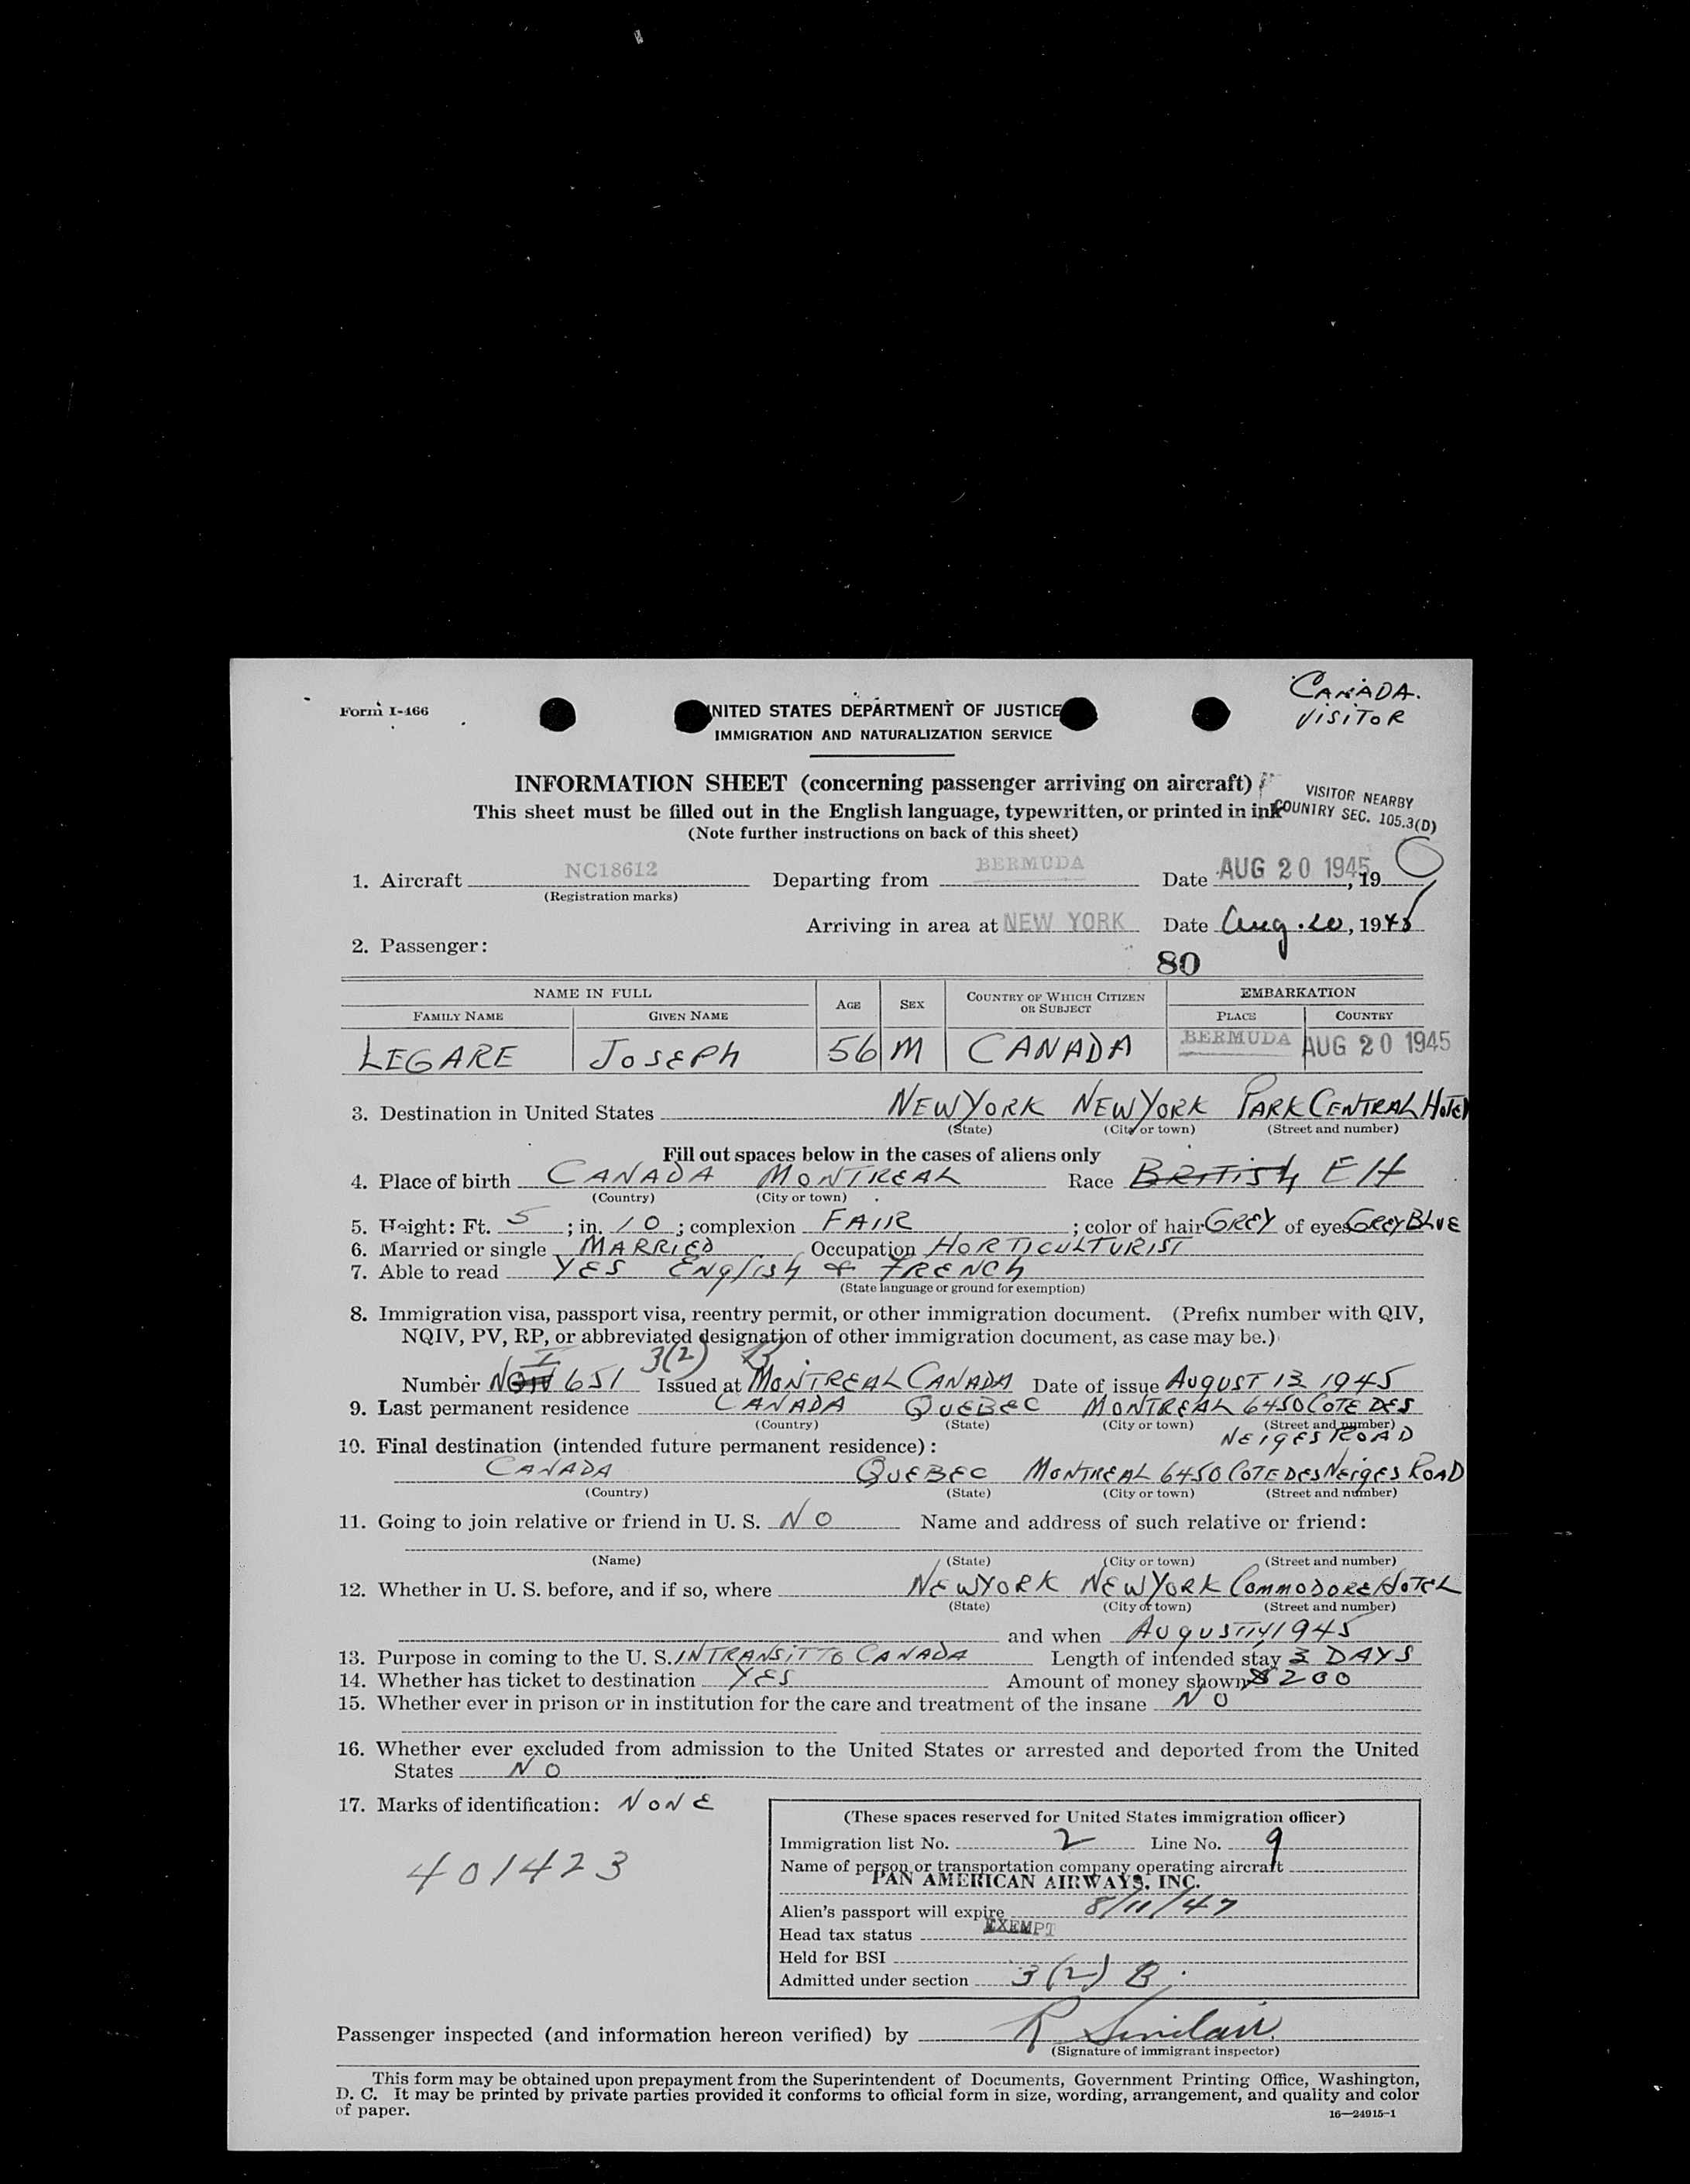 CANADA.
VISITOR
Form I-466
UNITED STATES DEPARTMENT OF JUSTICE
IMMIGRATION AND NATURALIZATION SERVICE
INFORMATION SHEET (concerning passenger arriving on aircraft)
VISITOR NEARBY
This sheet must be filled out in the English language, typewritten, or printed in ink
COUNTRY SEC. 105.3(D)
(Note further instructions on back of this sheet)
1. Aircraft NC18612 Departing from BERMUDA Date AUG 20 1945, 19
(Registration marks)
Arriving in area at NEW YORK Date Aug. 20, 1945
2. Passenger:
80
NAME IN FULL AGE SEX COUNTRY OF WHICH CITIZEN OR SUBJECT EMBARKATION
FAMILY NAME GIVEN NAME PLACE COUNTRY
LEGARE JOSEPH 56 M CANADA BERMUDA AUG 20 1945
3. Destination in United States NEW YORK NEW YORK PARK CENTRAL HOTEL
(State) (City or town) (Street and number)
Fill out spaces below in the cases of aliens only
4. Place of birth CANADA MONTREAL Race BRITISH EH
(Country) (City or town)
5. Height: Ft. 5; in. 10; complexion FAIR; color of hair GREY of eyes GREY BLUE
6. Married or single MARRIED Occupation HORTICULTURIST
7. Able to read YES ENglISh & FRENCh
(State language or ground for exemption)
8. Immigration visa, passport visa, reentry permit, or other immigration document. (Prefix number with QIV,
NQIV, PV, RP, or abbreviated designation of other immigration document, as case may be.)
3(2) B
Number 651 Issued at MONTREAL CANADA Date of issue AUGUST 13 1945
9. Last permanent residence CANADA QUEBEC MONTREAL 6450 COTE DES
(Country) (State) (City or town) (Street and number)
NEIGES ROAD
10. Final destination (intended future permanent residence):
CANADA QUEBEC MONTREAL 6450 COTE DES NEIGES ROAD
(Country) (State) (City or town) (Street and number)
11. Going to join relative or friend in U. S. NO Name and address of such relative or friend:
(Name) (State) (City or town) (Street and number)
12. Whether in U. S. before, and if so, where NEW YORK NEW YORK COMMODORE HOTEL
(State) (City or town) (Street and number)
and when AUGUST 14 1945
13. Purpose in coming to the U. S. IN TRANSIT TO CANADA Length of intended stay 3 DAYS
14. Whether has ticket to destination YES Amount of money shown $200
15. Whether ever in prison or in institution for the care and treatment of the insane NO
16. Whether ever excluded from admission to the United States or arrested and deported from the United
States NO
17. Marks of identification: NONE
401423
(These spaces reserved for United States immigration officer)
Immigration list No. 2 Line No. 9
Name of person or transportation company operating aircraft
PAN AMERICAN AIRWAYS, INC.
Alien's passport will expire 8/11/47
Head tax status EXEMPT
Held for BSI
Admitted under section 3(2) B.
Passenger inspected (and information hereon verified) by R Sinclair
(Signature of immigrant inspector)
This form may be obtained upon prepayment from the Superintendent of Documents, Government Printing Office, Washington,
D. C. It may be printed by private parties provided it conforms to official form in size, wording, arrangement, and quality and color
of paper.
16—24915-1